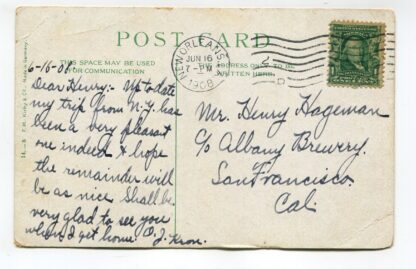 POST CARD
THIS SPACE MAY BE USED
FOR COMMUNICATION
THE ADDRESS ONLY TO BE
WRITTEN HERE.
NEW ORLEANS, LA
JUN 16
7-PM
1908
6-16-08.
Dear Henry:- Up to date
my trip from N.Y. has
been a very pleasant
one indeed & hope
the remainder will
be as nice. Shall be
very glad to see you
when I get home. O. J. Kron.
Mr. Henry Hageman
c/o Albany Brewery.
San Francisco.
Cal.